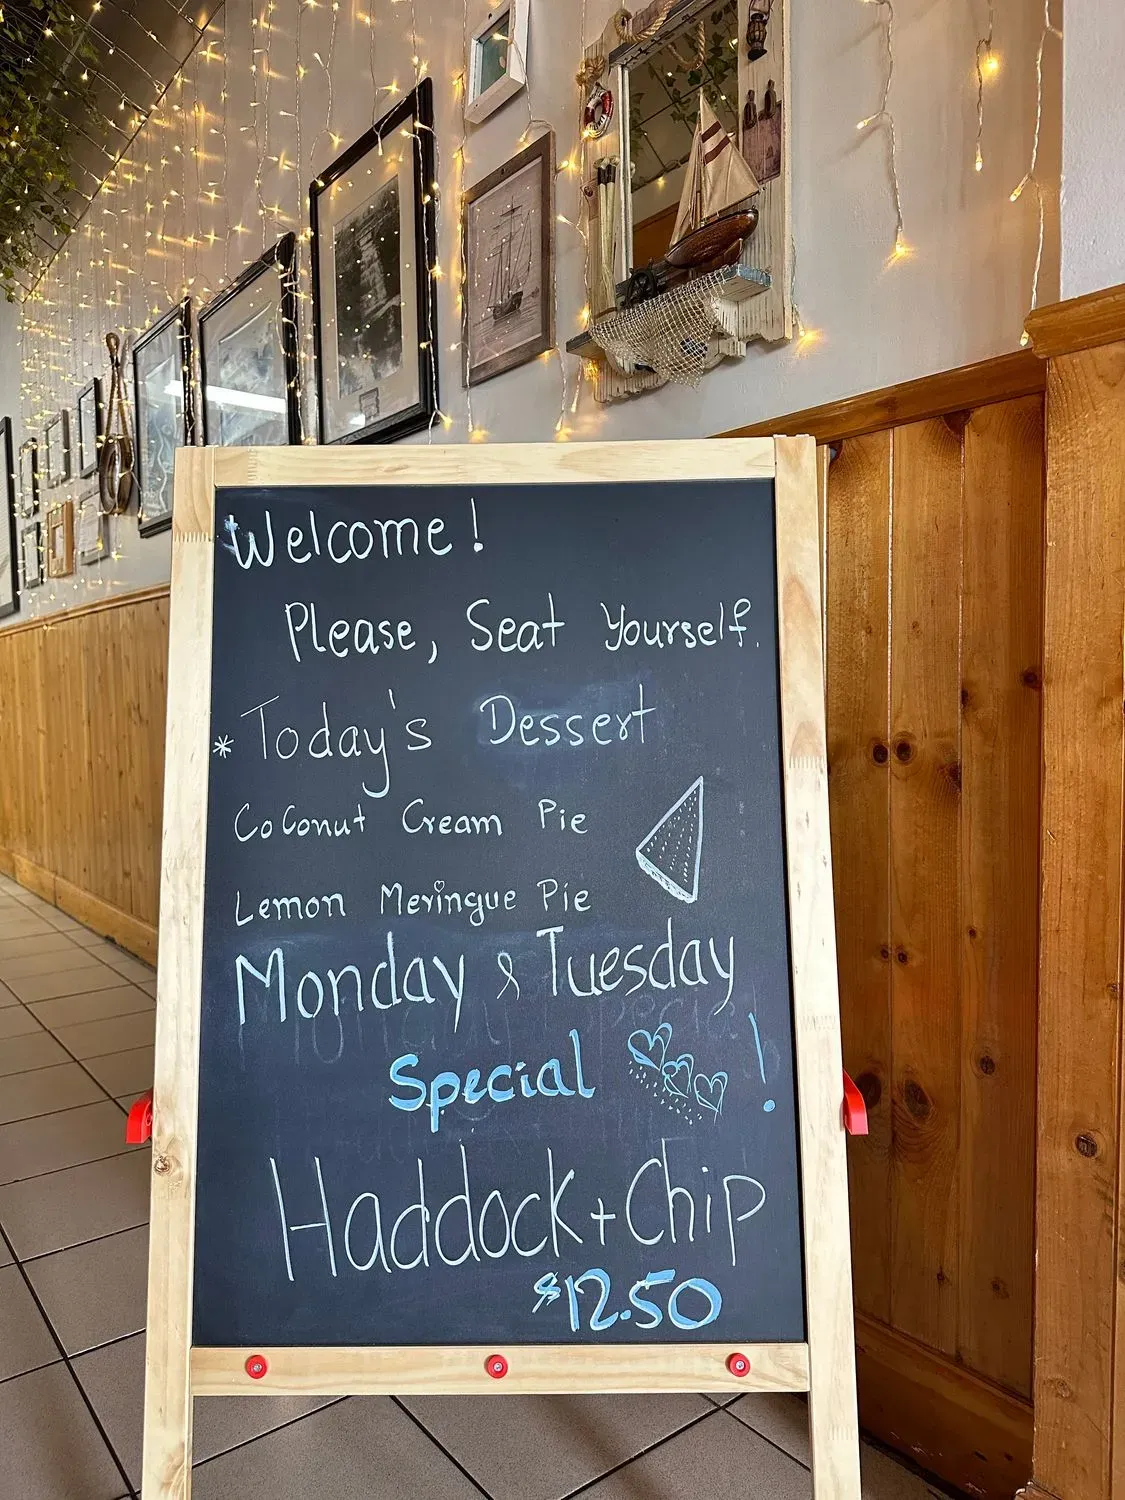 Welcome!
Please, Seat Yourself.
* Today's Dessert
Coconut Cream Pie
Lemon Meringue Pie
Monday & Tuesday
Special !
Haddock + Chip
$12.50